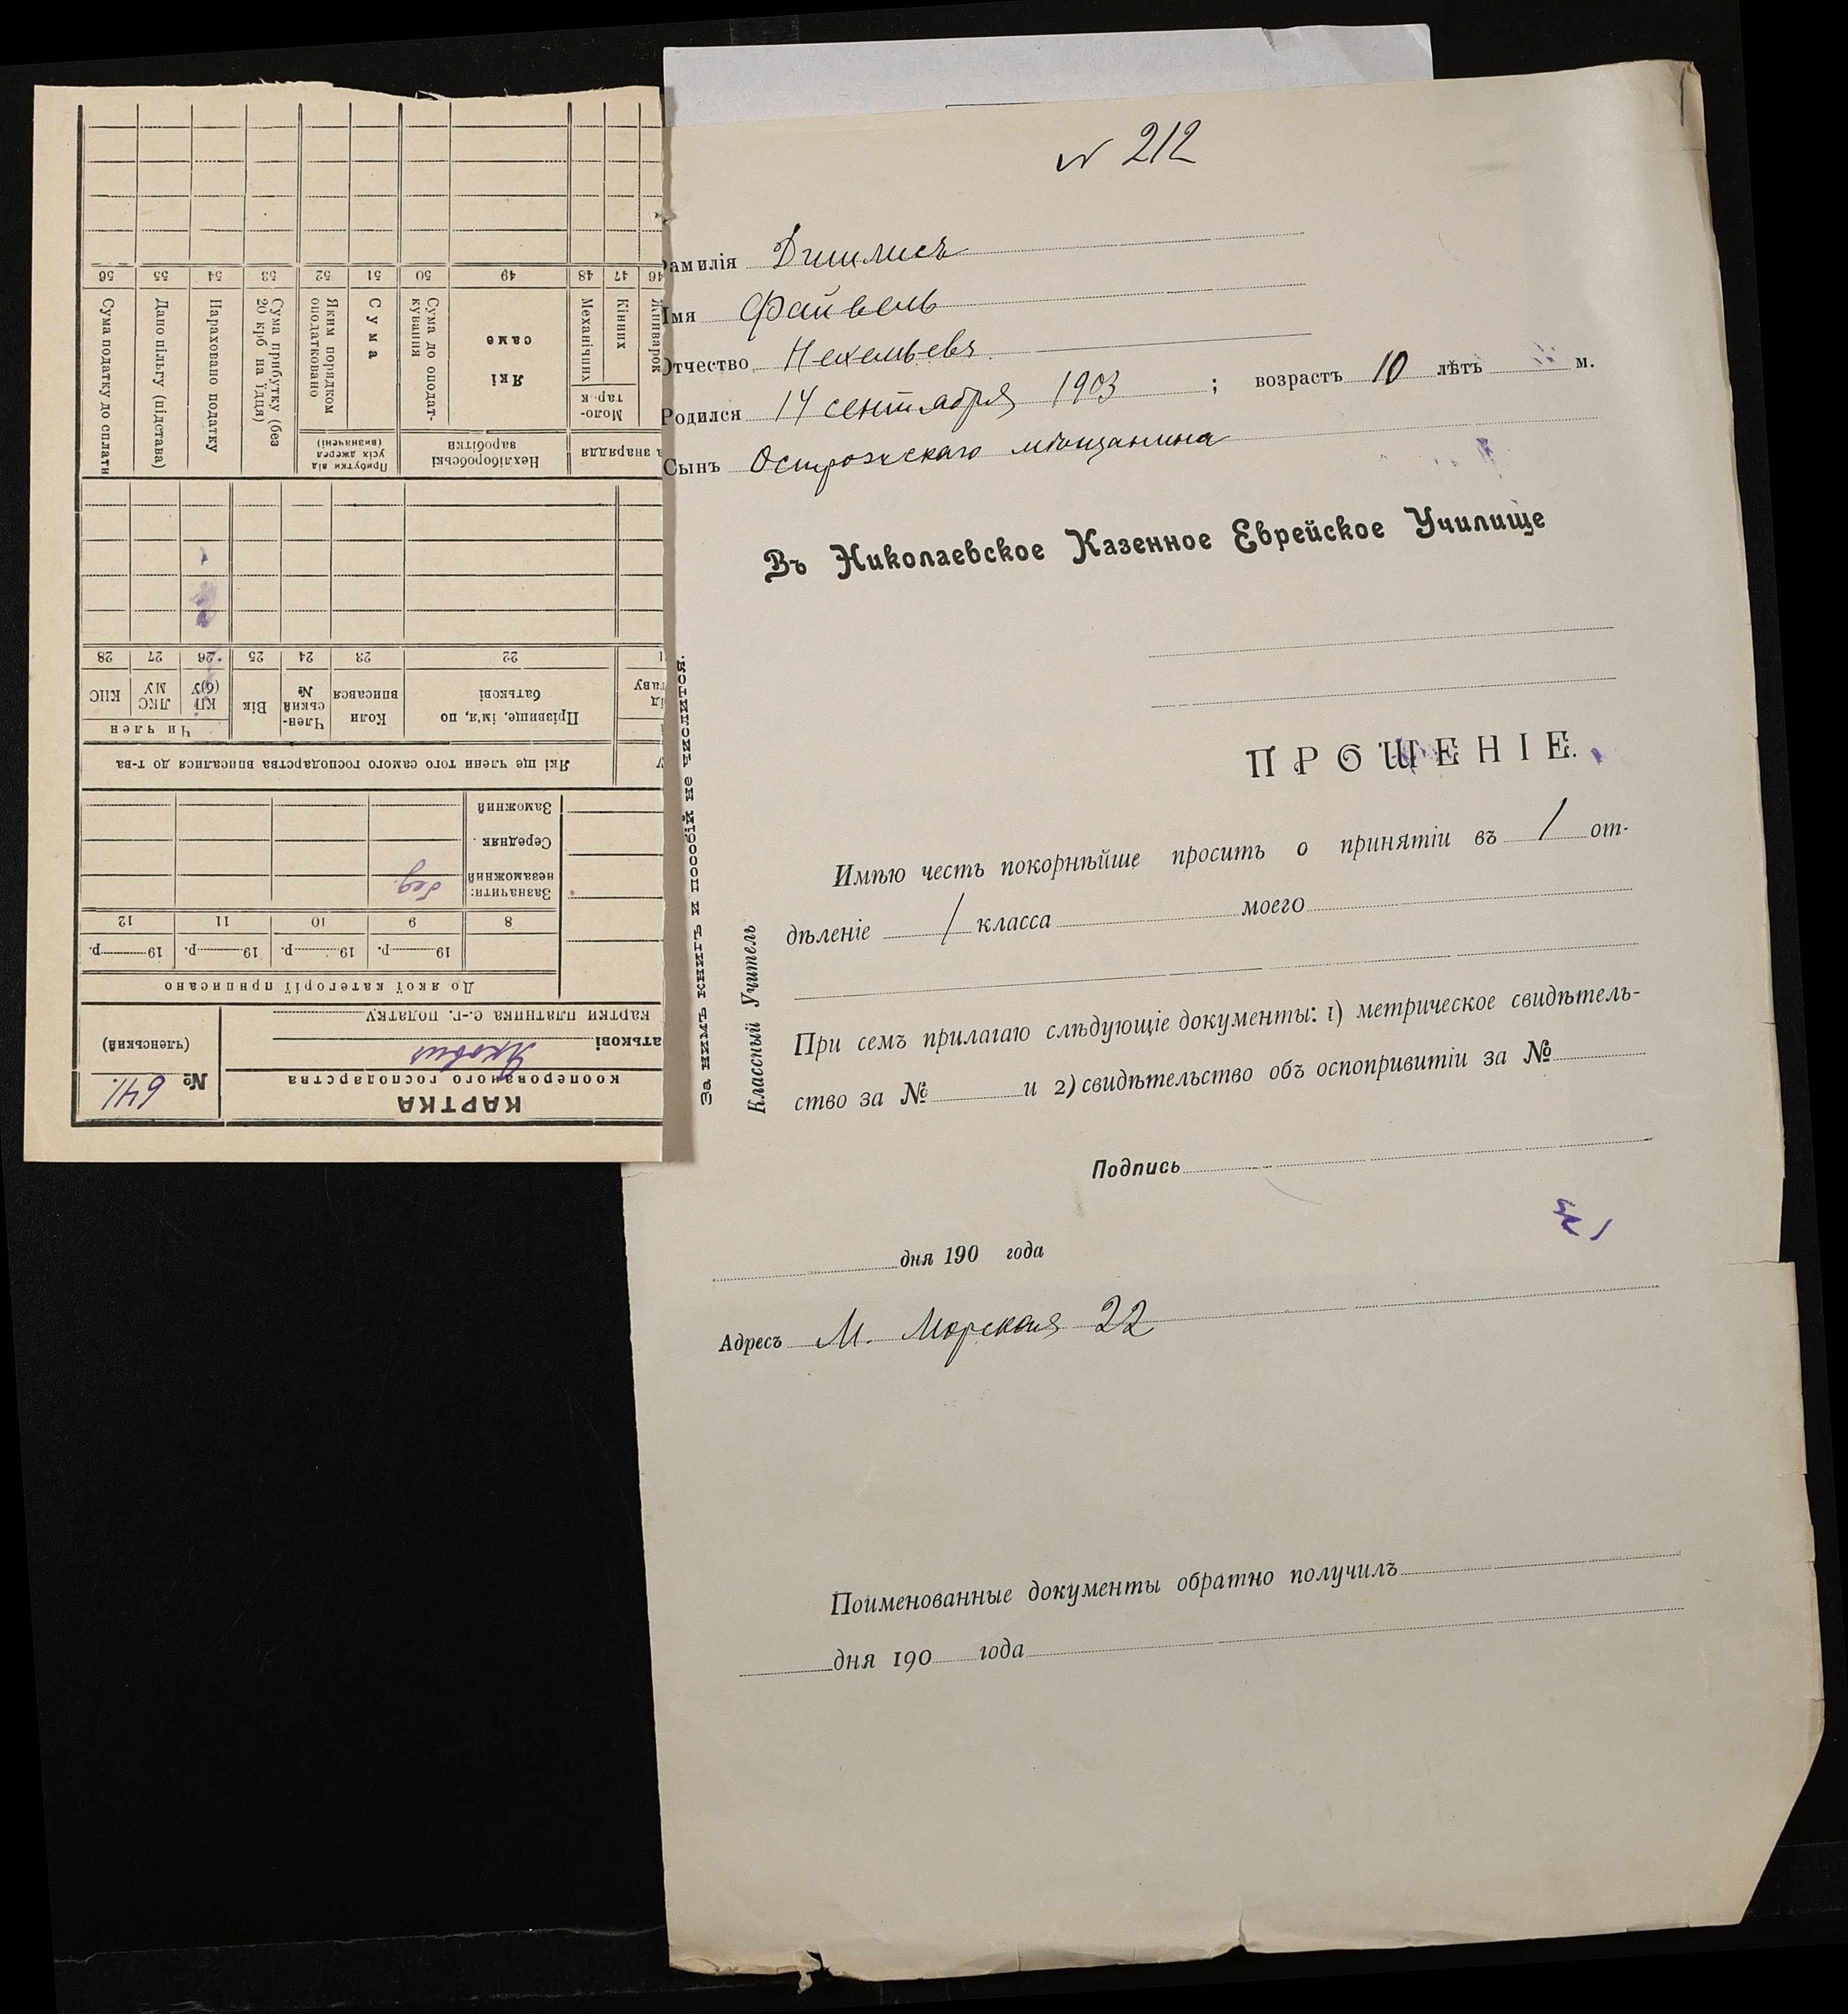 № 212
Фамилія
Имя Файвель
Отчество Нехемьевъ
Родился 14 сентября 1903 ; возрастъ 10 лѣтъ м.
Сынъ Острожскаго мѣщанина
Въ Николаевское Казенное Еврейское Училище
ПРОШЕНІЕ.
Имѣю честь покорнѣйше просить о принятіи въ 1 от-
дѣленіе 1 класса моего
При семъ прилагаю слѣдующіе документы: 1) метрическое свидѣтель-
ство за № и 2) свидѣтельство объ оспопривитіи за №
Подпись
дня 190 года
Адресъ М. Морская 22
Поименованные документы обратно получилъ
дня 190 года
За нимъ книгъ и пособій не числится.
Классный Учитель
КАРТКА
кооперованого господарства
№ 641.
(членський)
атькові
картки платника с.-г. податку
До якої категорії приписано
19 р. 19 р. 19 р. 19 р.
8 9 10 11 12
Зазначити:
незаможний бед.
Середняк
Заможний
Які ще члени того самого господарства вписалися до т-ва
Прізвище, ім'я, по батькові
Коли вписався
Член-ський №
Вік
Чи член
КП(б)У
ЛКСМУ
КНС
22 23 24 25 26 27 28
а знаряддя
Нехліборобські заробітки
Прибутки від усіх джерел (визначені)
Жниварок
Кінних
Механічних
Моло-тар.-к
Які саме
Сума до оподат-кування
Сума
Яким порядком оподатковано
Сума прибутку (без 20 крб на їдця)
Нараховано податку
Дано пільгу (підстава)
Сума податку до сплати
46 47 48 49 50 51 52 53 54 55 56